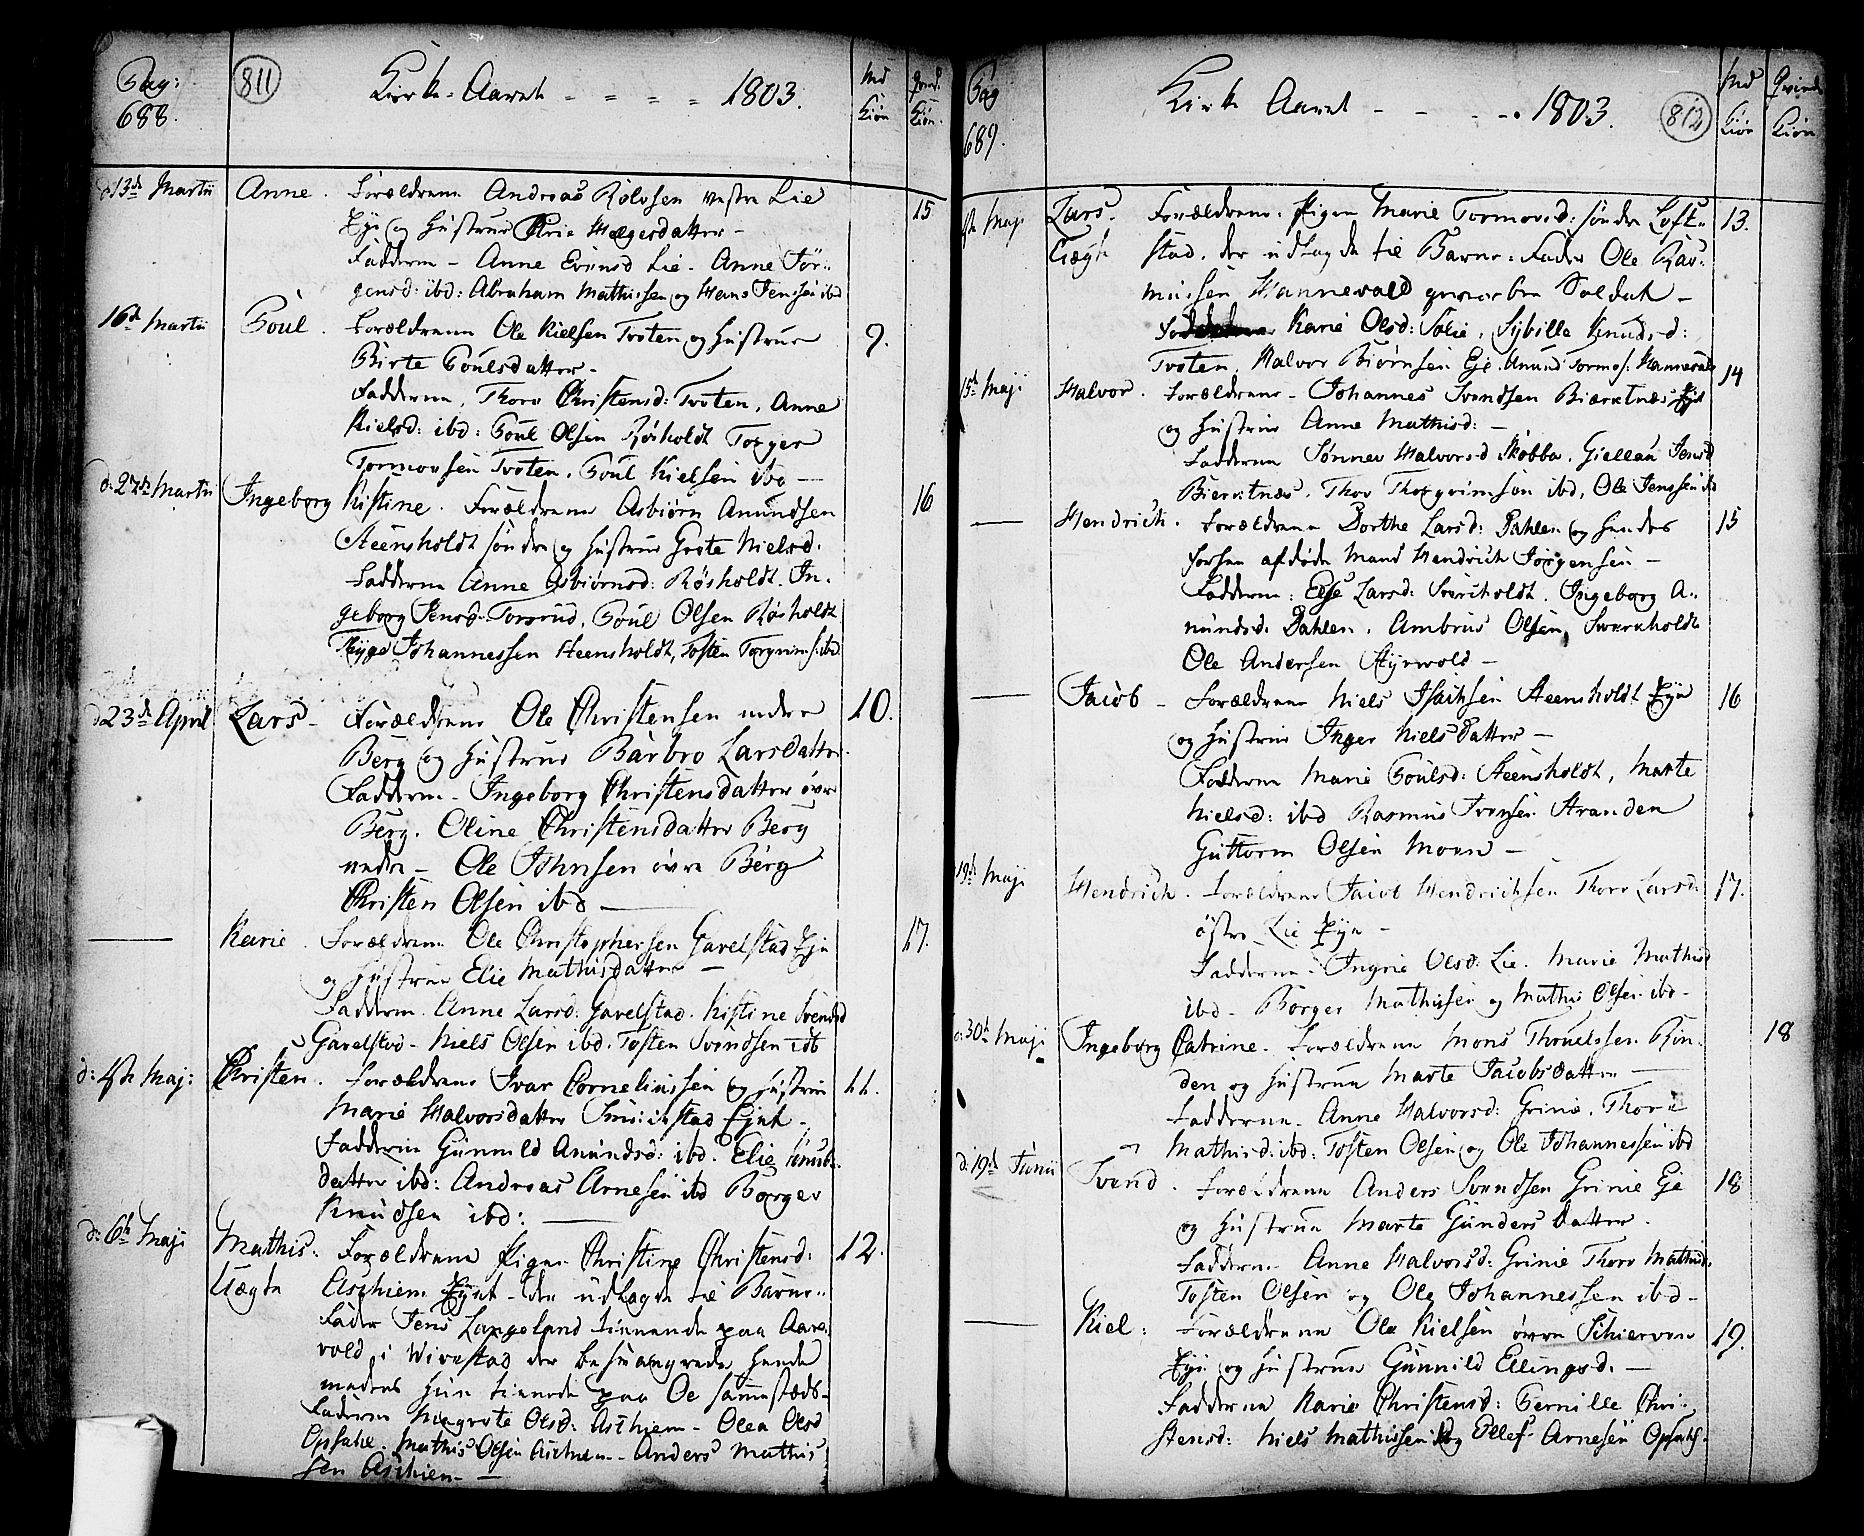 Pag: 688. 811 Kirke-Aaret - - - - 1803. Md Kiön Qvind Kiön.
d 13de Martii Anne. Forældrene Andreas Rolvsen vestre Lie 15
Eje og Hustrue Marie Helgesdatter -
Fadderne - Anne Evensd Lie. Anne Jör:
gensd: ibd: Abraham Mathissen og Hans Jenssen ibd
16de Martii Poul. Forældrene Ole Kielsen Tvoten og Hustrue 9.
Birte Poulsdatter -
Fadderne, Thore Christensd: Tvoten, Anne
Kielsd: ibd: Poul Olsen Rösholdt Torger
Tormodsen Tvoten. Poul Kielsen ibd -
d: 27de Martii Ingeborg Kistine. Forældrene Asbiörn Amundsen 16
Steensholdt söndre og Hustrue Grete Nielsd.
Fadderne Anne Asbiörnsd: Rösholdt. In-
geborg Jensd. Torsrud, Poul Olsen Rösholdt
Johannessen Steensholdt, Tosten Torgrims: ibd
d 23de April Lars - Forældrene Ole Christensen nedre 10.
Berg og Hustrue Barbro Larsdatter.
Fadderne - Ingeborg Christensdatter övre
Berg. Oline Christensdatter Berg
nedre - Ole Johnsen övre Berg
Christen Olsen ibd -
— Karie. Forældrene Ole Christophersen Gavelstad Eje 17.
og Hustrue Elie Mathisdatter -
Fadderne. Anne Larsd: Gavelstad. Kistine Svendsd
Gavelstad - Niels Olsen ibd. Tosten Svendsen ibd
d: 4de Maj: Christen. Forældrene Ivar Corneliussen og Hustrue 11.
Marie Halvorsdatter Ejet -
Fadderne Gunnild Amundsd: ibd. Elie Knuds:
datter ibd: Andreas Arnesen ibd Borger
Knudsen ibd: -
d: 6te Maji Mathis: Forældrene Pigen Christine Christensd: 12.
Uægte Aschiem Ejet - den udlagde til Barne:
Fader Jens Langeland tienende paa Aare
vold i Wivestad der besvangrede hende
medens hun tienede paa Oe sammesteds -
Fadderne Margrete Olsd: Aschiem - Olea Olsd
Opsahl. Mathis Olsen Aschiem - Anders Mathis
sen Aschiem -
Pag 689. Kirke Aaret - - - - 1803. 812 Md Kiön Qvinde Kiön
4de Maji Lars. Forældrene. Pigen Marie Tormodsd: söndre Loft- 13.
Uægte stad, der udlagde til Barne: Fader Ole Ras:
mussen Hannevold geworben Soldat -
Karie Olsd: Solie, Sybille Knudsd:
Tvoten, Halvor Biörnsen Eje. Knud Tormos: Hannevold
15de Maji Halvor. Forældrene - Johannes Svendsen Bierketnæs Eje 14
og Hustrue Anne Mathisd: -
Fadderne Sönnev Halvorsd Skobba. Giellau Jensd
Bierketnæs. Thor Thorgrimsen ibd, Ole Jenssen ibd
— Hendrich. Forældrene Dorthe Larsd: Dahlen og hendes 15
forhen afdöde Mand Hendrich Jörgensen -
Fadderne: Else Larsd: Sverholdt. Ingeborg A-
mundsd. Dahlen, Ambrus Olsen Sverholdt
Ole Andersen Styrvold -
— Jacob - Forældrene Niels Isachsen Steensholdt Eje 16
og Hustrue Inger Nielsdatter -
Fadderne Marie Poulsd: Steensholdt, Marte
Nielsd: ibd Rasmus Iversen Stranden
Guttorm Olsen Moen -
19de Maji Hendrich. Forældrene Jacob Hendrichsen Thore Larsd: 17.
östre Lie Eje -
Fadderne. Ingrie Olsd: Lie. Marie Mathisd
ibd - Borger Mathissen og Mathis Olsen ibd -
d: 30te Maji Ingeborg Catrine - Forældrene Mons Thruelssen Rön- 18
den og Hustrue Marte Jacobsdatter -
Fadderne. Anne Halvorsd: Grinie. Thore
Mathisd: ibd: Tosten Olsen og Ole Johannessen ibd
d: 19de Junii Svend. Forældrene Anders Svendsen Grinie Eje 18
og Hustrue Marte Gundersdatter.
Fadderne Anne Halvorsd: Grinie Thore Mathisd.
Tosten Olsen og Ole Johannessen ibd -
— Kiel: Forældrene Ole Kielsen övre Schierven 19.
Eje og Hustrue Gunnild Ellingsd. -
Fadderne Karie Christensd: Pernille Chri:
stensd: Niels Mathissen og Ellef Arnesen Opsahl.